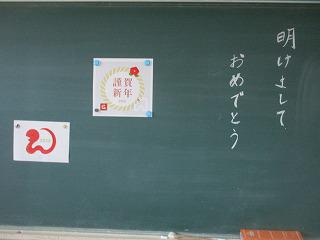 明けまして
おめでとう
謹賀
新年